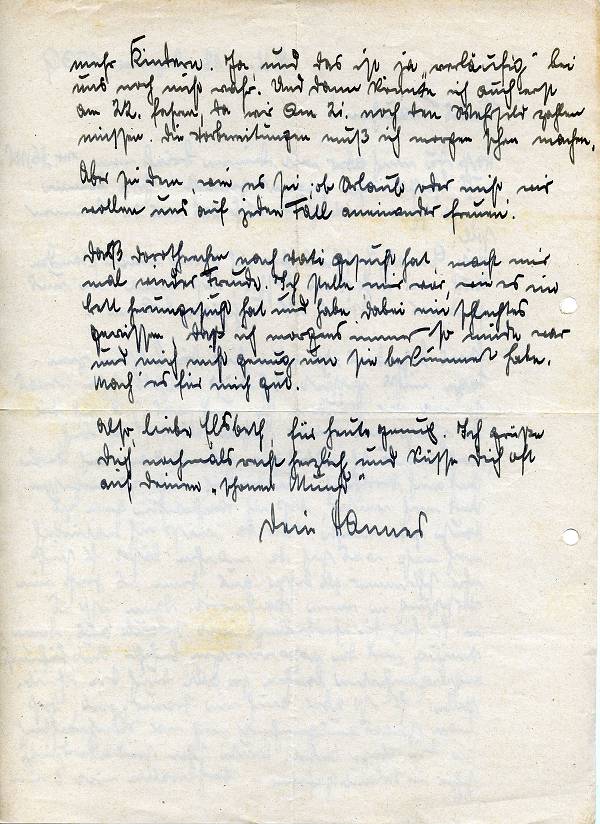 mehr Kindern. Ja, und das ist ja „vorläufig" bei
uns noch nicht wahr. Und dann könnte ich auch erst
am 22. fahren, da wir am 21. noch den Wehrsold zahlen
müssen. Die Vorbereitungen muß ich morgen schon machen.
Aber sei dem, wie es sei, ob Urlaub oder nicht, wir
wollen uns auf jeden Fall aneinander freuen.
Daß Dorothechen nach Vati gesucht hat, macht mir
mal wieder Freude. Ich stelle mir vor, wie es im
Bett herumgesucht hat und habe dabei ein schlechtes
Gewissen, daß ich morgens immer so müde war
und mich nicht genug um sie bekümmert habe.
Mach' es für mich gut.
Also, liebe Elsbeth, für heute genug. Ich grüße
Dich nochmals recht herzlich und küsse Dich oft
auf Deinen „schönen Mund"
Dein Hannes